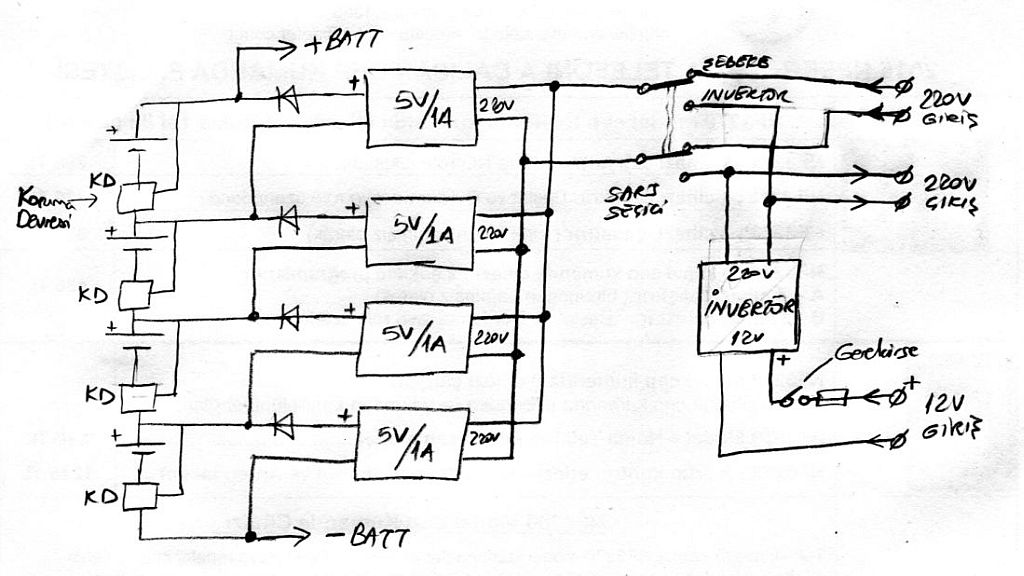 +BATT
+
5V/1A
220V
ŞEBEKE
İNVERTÖR
220V
GİRİŞ
+
KD
Koruma
Devresi
+
5V/1A
220V
ŞARJ
SEÇİCİ
220V
ÇIKIŞ
+
KD
+
5V/1A
220V
220V
İNVERTÖR
12V
+
Gerekirse
+
12V
GİRİŞ
+
KD
+
5V/1A
220V
+
KD
-BATT